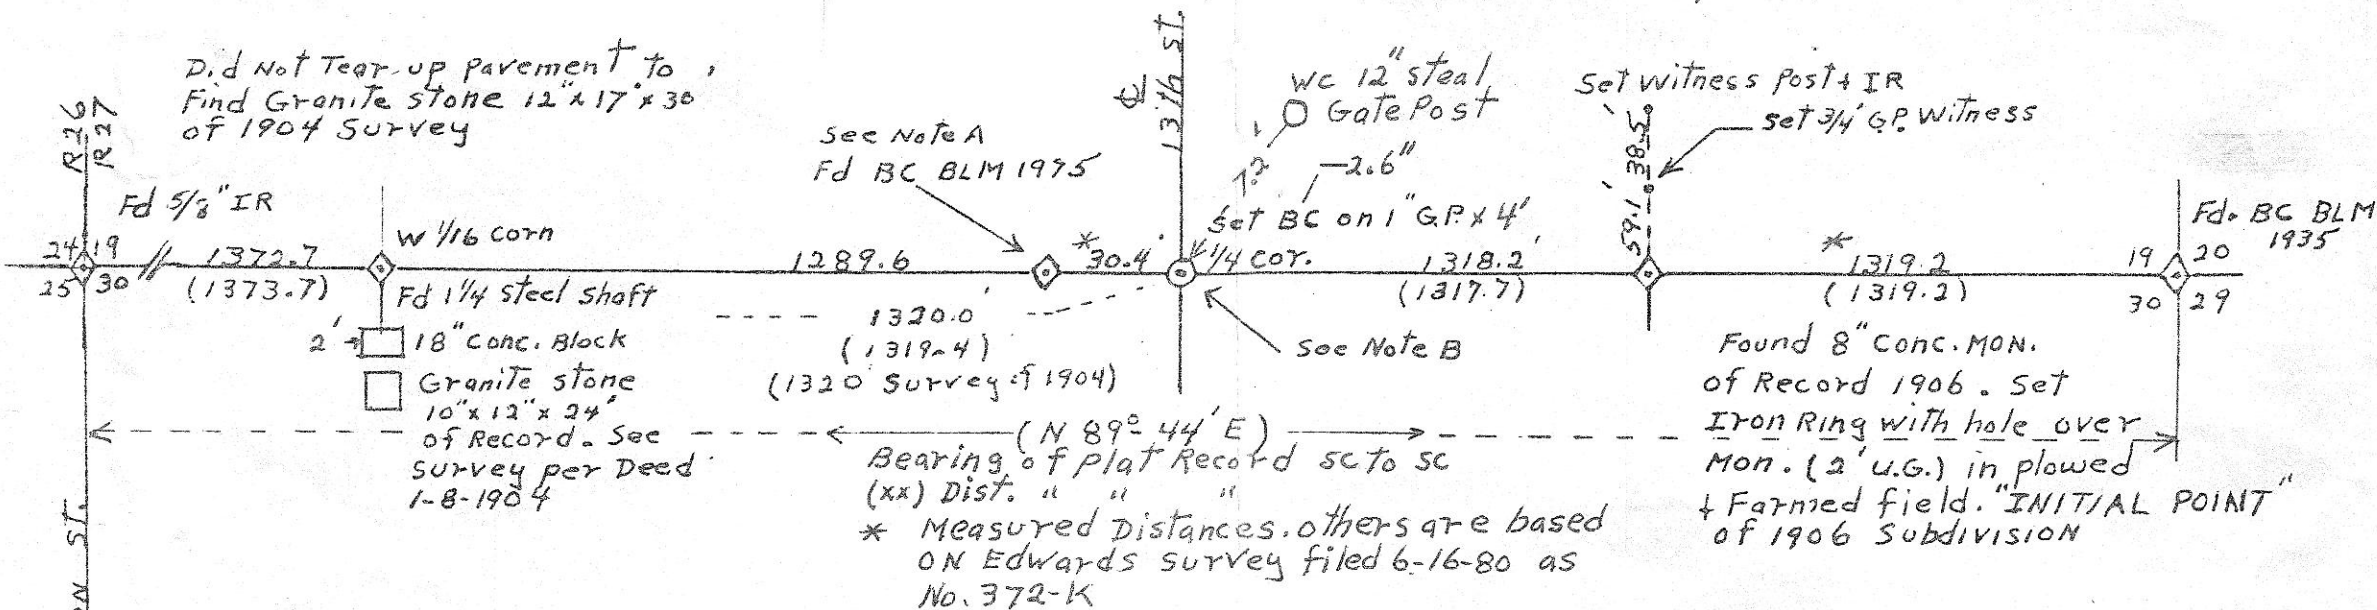 Did Not Tear up pavement to
Find Granite stone 12"x 17"x 30
of 1904 Survey
R 26
R 27
Fd 5/8" IR
24 19
25 30
1372.7
(1373.7)
W 1/16 corn
Fd 1 1/4 steel shaft
2'
18" Conc. Block
Granite stone
10"x 12"x 24"
of Record. See
Survey per Deed
1-8-1904
See Note A
Fd BC BLM 1975
1289.6
* 30.4'
1320.0'
(1319.4)
(1320 Survey of 1904)
℄ 13th St.
WC 12" steal
Gate Post
2.6"
Set BC on 1" G.P. x 4'
1/4 cor.
See Note B
1318.2'
(1317.7)
Set Witness Post & IR
38.5'
set 3/4" G.P. Witness
59.1'
* 1319.2
(1319.2)
19 20
30 29
Fd. BC BLM
1935
Found 8" Conc. MON.
of Record 1906. Set
Iron Ring with hole over
Mon. (2' U.G.) in plowed
& Farmed field. "INITIAL POINT"
of 1906 Subdivision
(N 89° 44' E)
Bearing of Plat Record SC to SC
(xx) Dist. " " "
* Measured Distances. others are based
ON Edwards Survey filed 6-16-80 as
No. 372-K
ST.